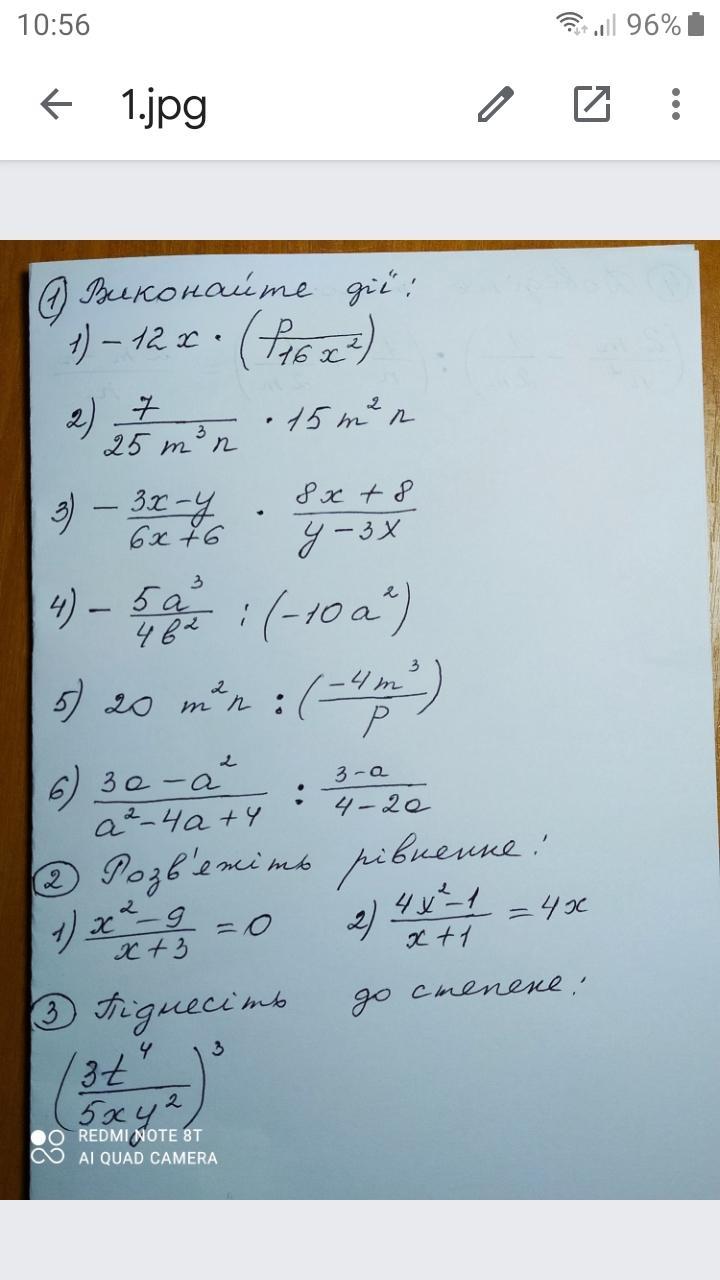 10:56 96%
1.jpg
① Виконайте дії:
1) -12x · (p/16x²)
2) 7/25m³n · 15m²n
3) - 3x-y/6x+6 · 8x+8/y-3x
4) - 5a³/4b² : (-10a²)
5) 20 m²n : (-4m³/p)
6) 3a-a²/a²-4a+4 : 3-a/4-2a
② Розв'яжіть рівнення:
1) x²-9/x+3 = 0 2) 4x²-1/x+1 = 4x
③ Піднесіть до степеня:
(3t⁴/5xy²)³
REDMI NOTE 8T
AI QUAD CAMERA